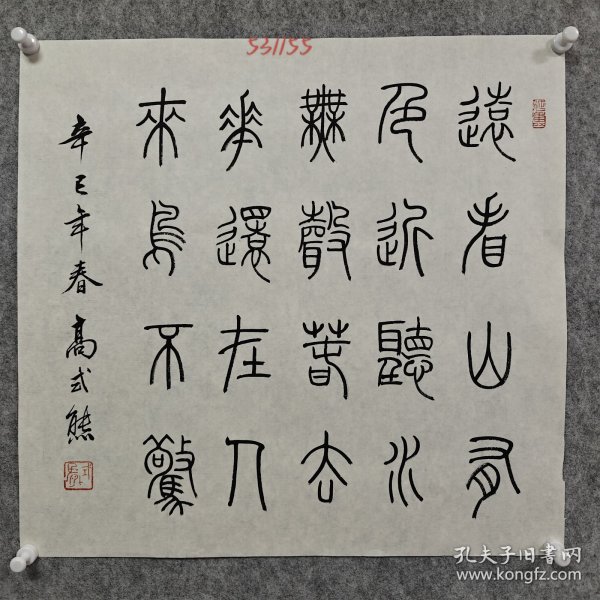 531155
遠看山有
色近聽水
無聲春去
花還在人
來鳥不驚
辛巳年春 高式熊
孔夫子旧书网
www.kongfz.com